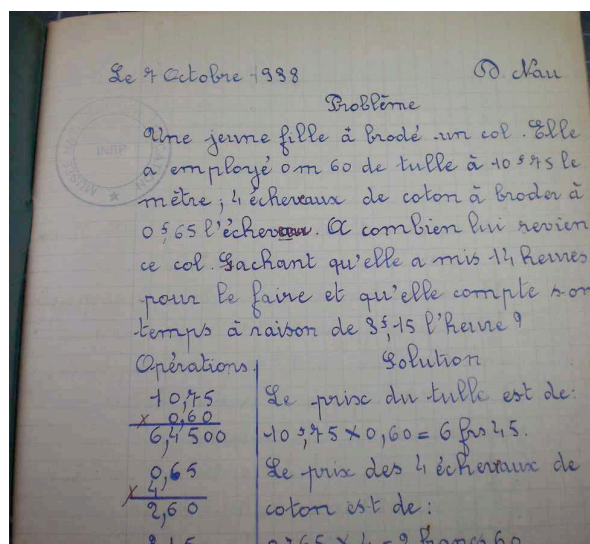 Le 7 Octobre 1938 D. Nau
Problème
Une jeune fille à brodé un col. Elle
a employé 0m60 de tulle à 10f75 le
mètre; 4 écheveaux de coton à broder à
0f,65 l'écheveau. A combien lui revien
ce col. Sachant qu'elle a mis 14 heures
pour le faire et qu'elle compte son
temps à raison de 3f,15 l'heure?
Opérations. Solution
10,75 Le prix du tulle est de:
x 0,60
6,4500 10f,75 x 0,60 = 6 frs 45.
0,65 Le prix des 4 écheveaux de
x 4
2,60 coton est de:
3,15 0f65 x 4 = 2 francs 60
INRP